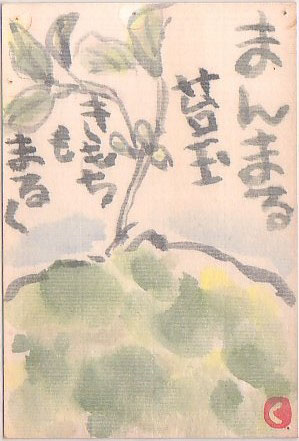 まんまる
苔玉
きもち
も
まるく
く